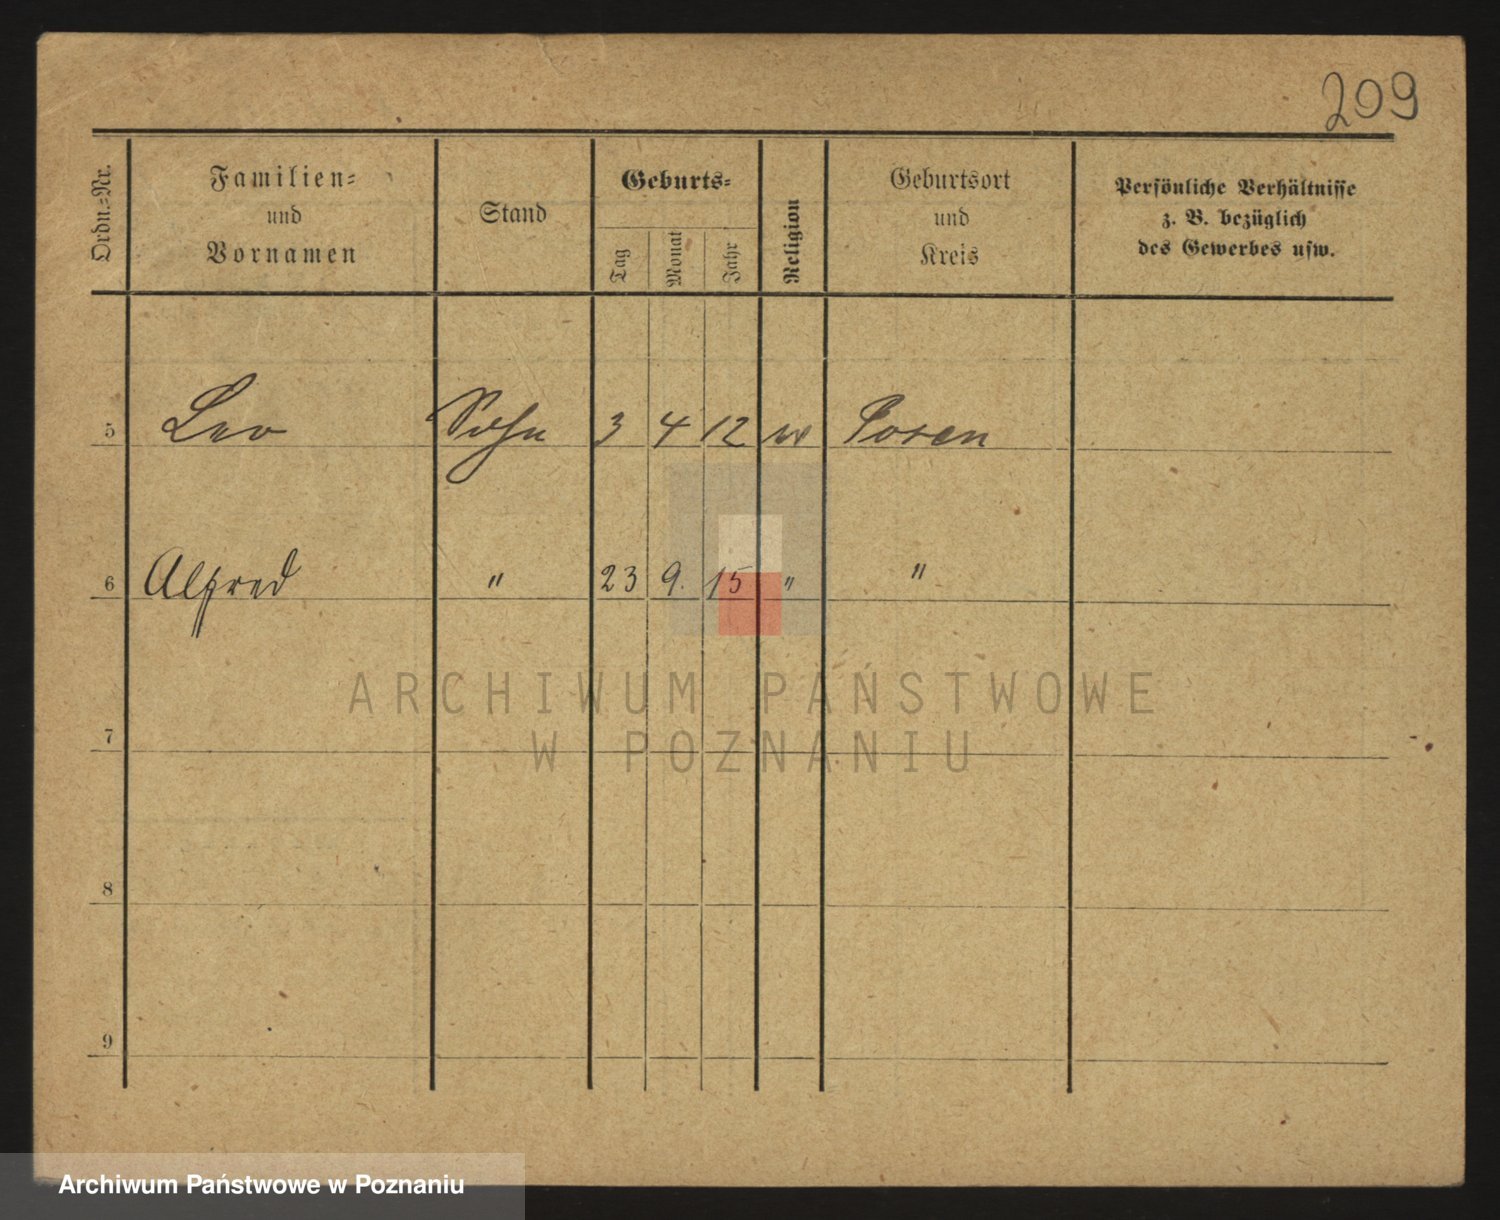 209
Ordn.-Nr.
Familien-
und
Vornamen
Stand
Geburts-
Tag
Monat
Jahr
Religion
Geburtsort
und
Kreis
Persönliche Verhältnisse
z. B. bezüglich
des Gewerbes usw.
5 Leo Sohn 3 4 12 Posen
6 Alfred " 23 9. 15 " "
ARCHIWUM PAŃSTWOWE
W POZNANIU
7
8
9
Archiwum Państwowe w Poznaniu